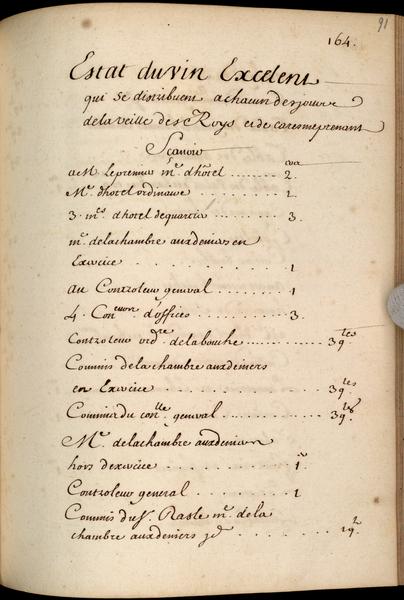 91
164.
Estat du vin Excelent
qui se distribuent a chacun des jours
de la veille des Roys et de caresmeprenant
Scauoir
a M. le premier m.e d'hôtel ........ 2.
M.e d'hotel ordinaire ........ 2.
3. m.es d'hotel de quartier ........ 3.
m.e de la chambre aux deniers en
Exercice . . . . . . . . 1
au Controleur general ........ 1
4. Con.eurs d'offices ........ 3.
Controleur ord.re de la bouche ........ 3q.tes
Commis de la chambre aux deniers
en Exercice ........ 3q.tes
Commis du con.lle general ........ 3q.tes
M.e de la chambre aux deniers
hors d'exercice ........ 1.
Controleur general ........ 1
Commis du S.r Rasle m.e de la
chambre aux deniers